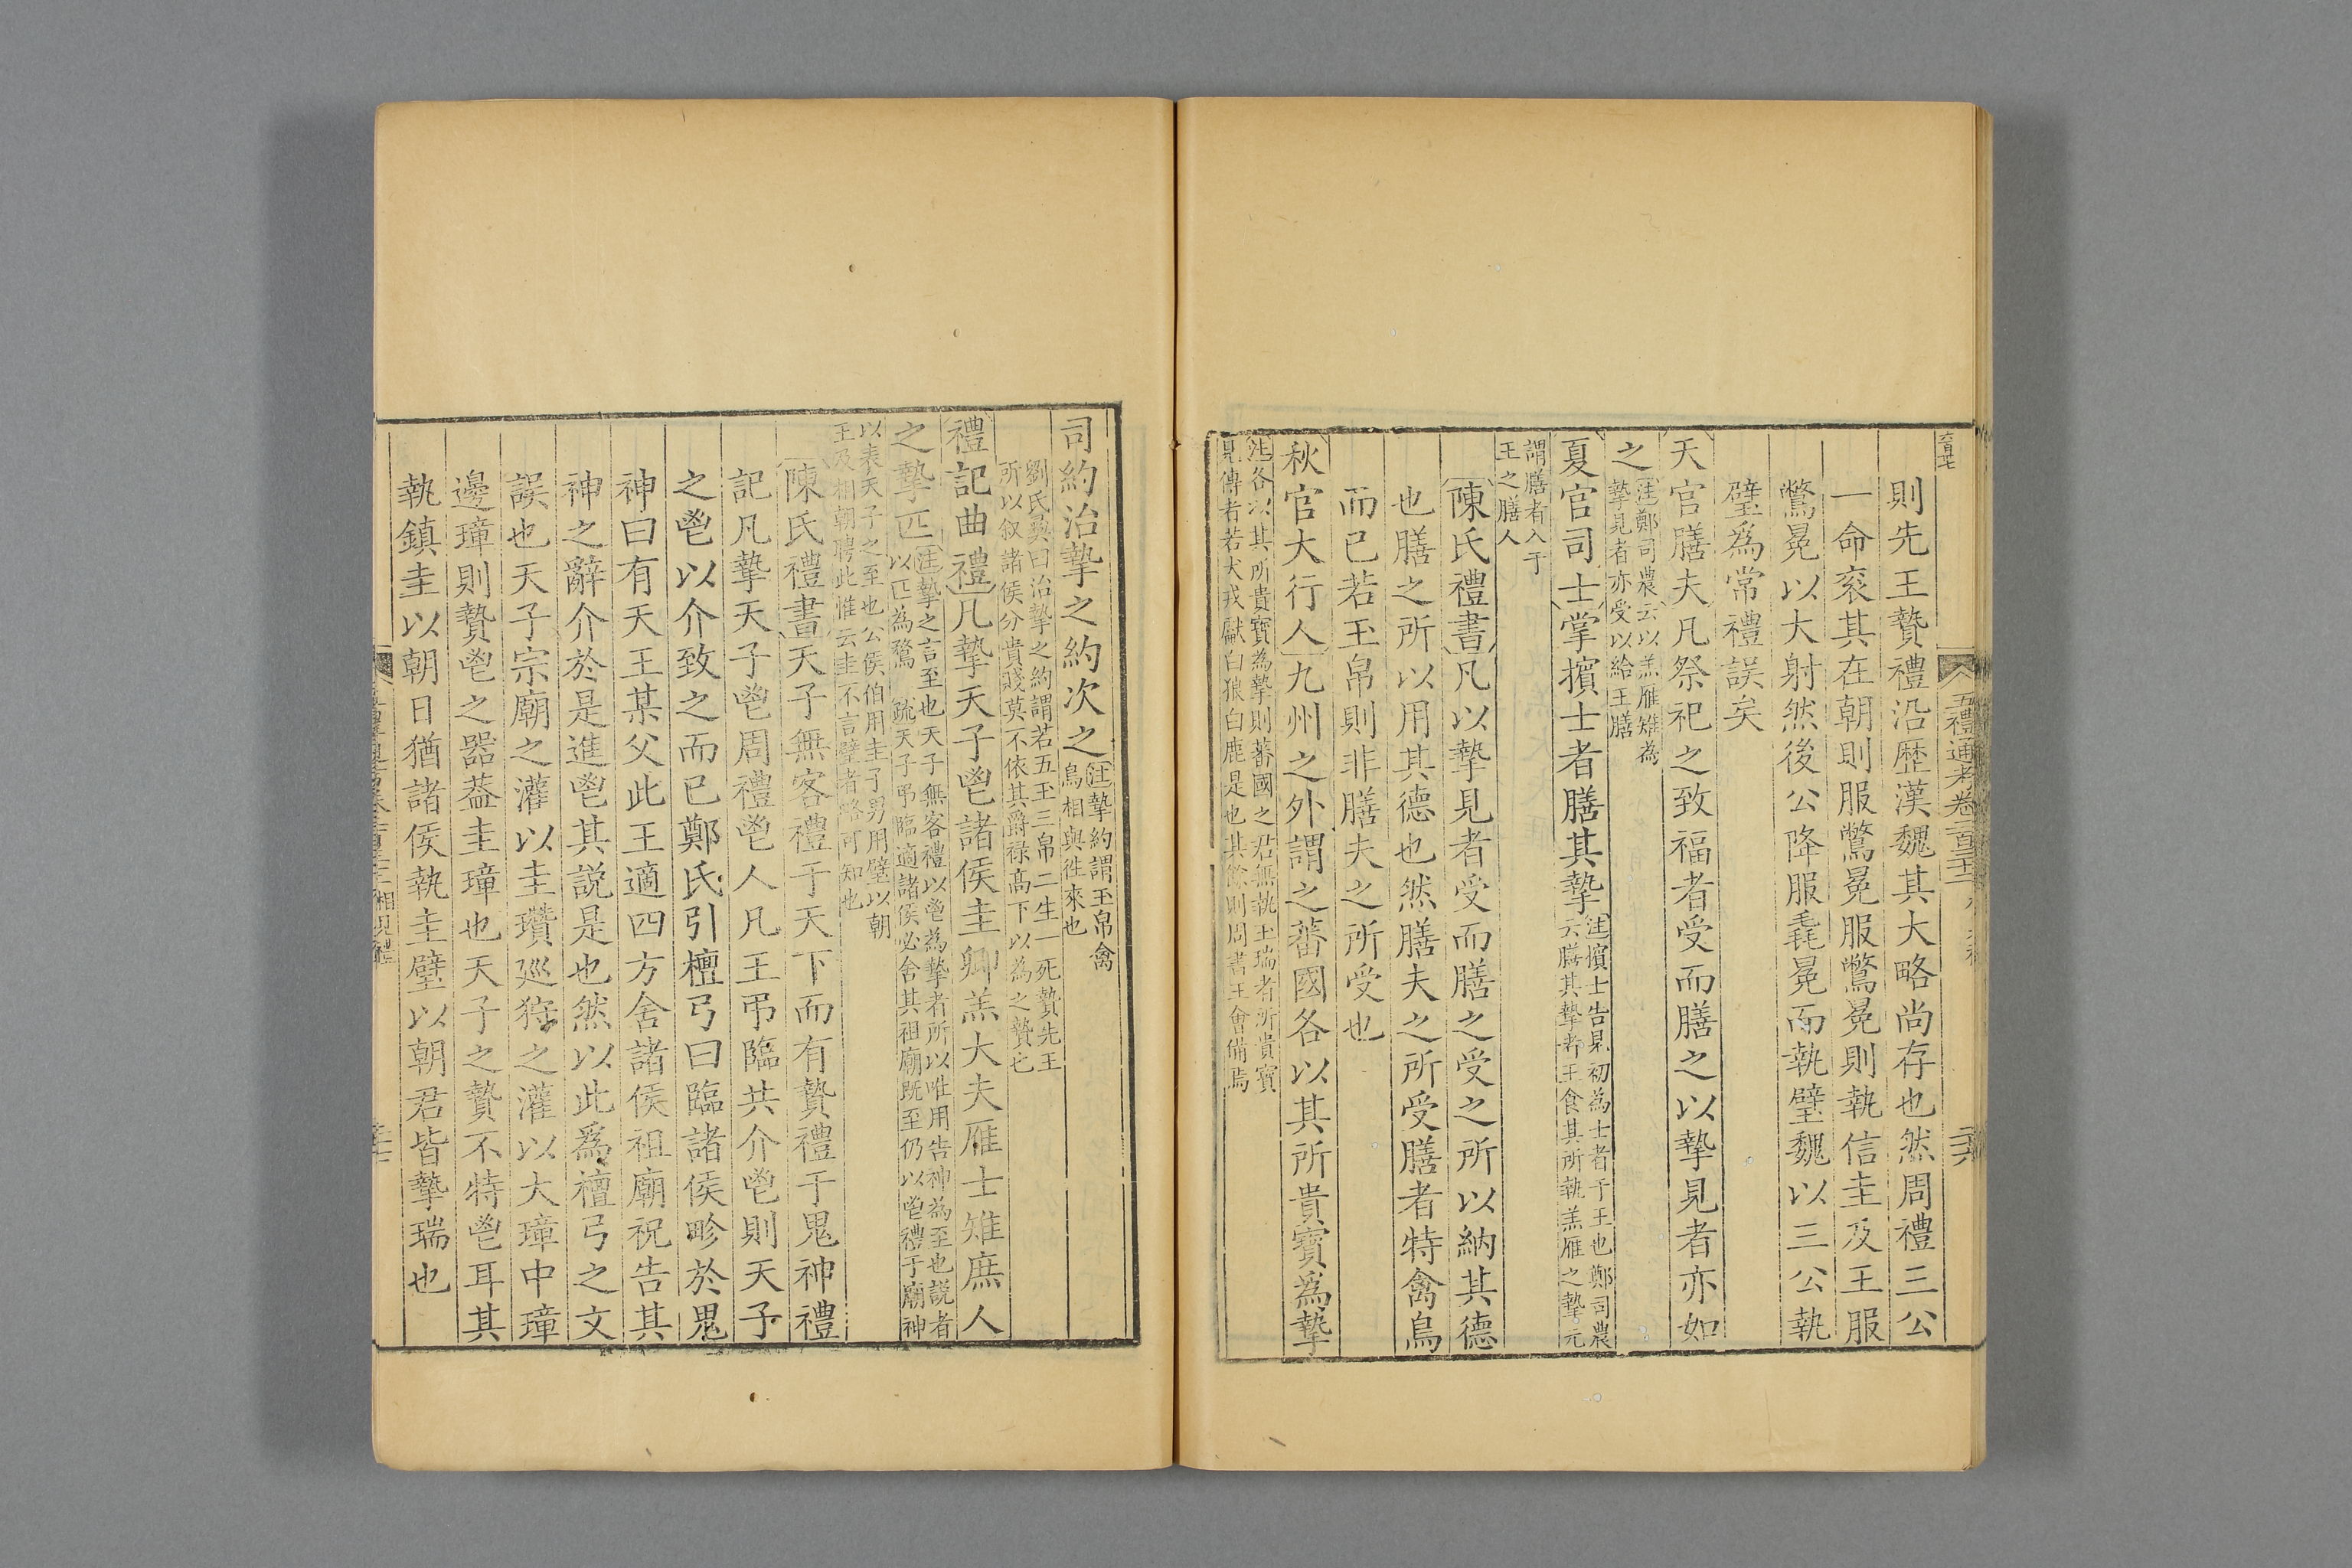 五禮通考卷二百三十二
則先王贄禮沿歷漢魏其大略尚存也然周禮三公
一命衮其在朝則服鷩冕服鷩冕則執信圭及王服
鷩冕以大射然後公降服毳冕而執璧魏以三公執
璧爲常禮誤矣
天官膳夫凡祭祀之致福者受而膳之以摯見者亦如
之注鄭司農云以羔雁雉為
摯見者亦受以給王膳
夏官司士掌擯士者膳其摯注擯士告見初為士者于王也鄭司農
云膳其摯者王食其所執羔雁之摯元
謂膳者入于
王之膳人
陳氏禮書凡以摯見者受而膳之受之所以納其德
也膳之所以用其德也然膳夫之所受膳者特禽鳥
而已若玉帛則非膳夫之所受也
秋官大行人九州之外謂之蕃國各以其所貴寳爲摯
注各以其所貴寳為摯則蕃國之君無執玉瑞者所貴寳
見傳者若犬戎獻白狼白鹿是也其餘則周書王會備焉
司約治摯之約次之注摯約謂玉帛禽
鳥相與徃來也
劉氏彛曰治摯之約謂若五玉三帛二生一死贄先王
所以叙諸侯分貴賤莫不依其爵祿高下以為之贄也
禮記曲禮凡摯天子鬯諸侯圭卿羔大夫雁士雉庶人
之摯匹注摯之言至也天子無客禮以鬯為摯者所以唯用告神為至也說者
以匹為鶩 疏天子弔臨適諸侯必舍其祖廟既至仍以鬯禮于廟神
以表天子之至也公侯伯用圭子男用璧以朝
王及相朝聘此惟云圭不言璧者略可知也
陳氏禮書天子無客禮于天下而有贄禮于鬼神禮
記凡摯天子鬯周禮鬯人凡王弔臨共介鬯則天子
之鬯以介致之而已鄭氏引檀弓曰臨諸侯畛於鬼
神曰有天王某父此王適四方舍諸侯祖廟祝告其
神之辭介於是進鬯其説是也然以此爲檀弓之文
誤也天子宗廟之灌以圭瓚廵狩之灌以大璋中璋
邊璋則贄鬯之器葢圭璋也天子之贄不特鬯耳其
執鎮圭以朝日猶諸侯執圭璧以朝君皆摯瑞也